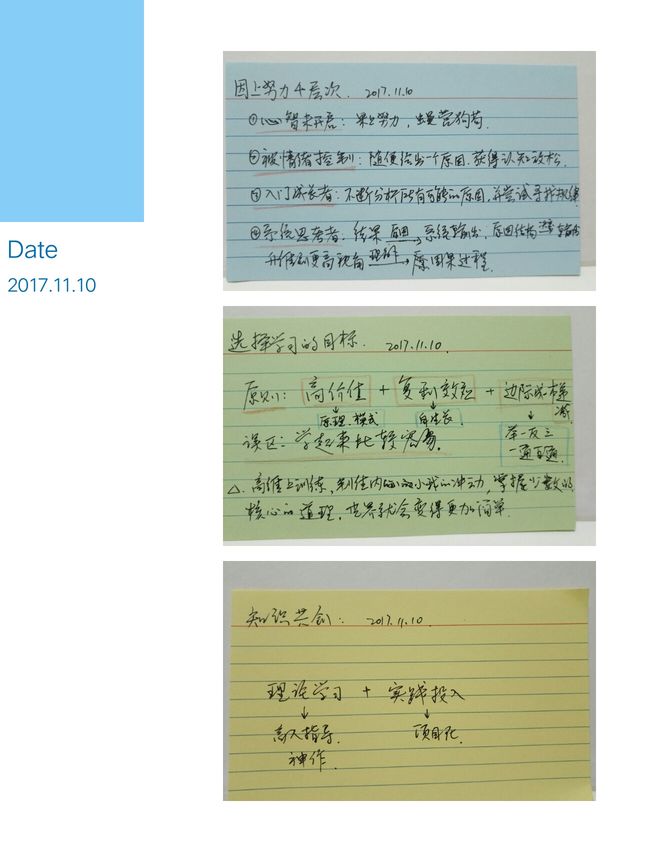 Date
2017.11.10
因上努力4层次. 2017.11.10
①心智未开启: 果上努力, 蝇营狗苟.
②被情绪控制: 随便给出一个原因. 获得认知放松.
③入门成长者: 不断分析所有可能的原因, 并尝试寻找规律
④系统思考者: 结果 自因→ 系统输出, 原因结构
升维到更高视角 → 原因果过程.
选择学习的目标. 2017.11.10.
原则: 高价值 + 复利效应 + 边际成本递减
原理、模式 自生长
误区: 学起来比较容易. 举一反三
一通百通
△. 高维上训练, 制住内心的小我的冲动, 掌握少数的
核心的道理, 世界就会变得更加简单.
知识共创: 2017.11.10.
理论学习 + 实践投入
高人指导. 项目化.
神作.